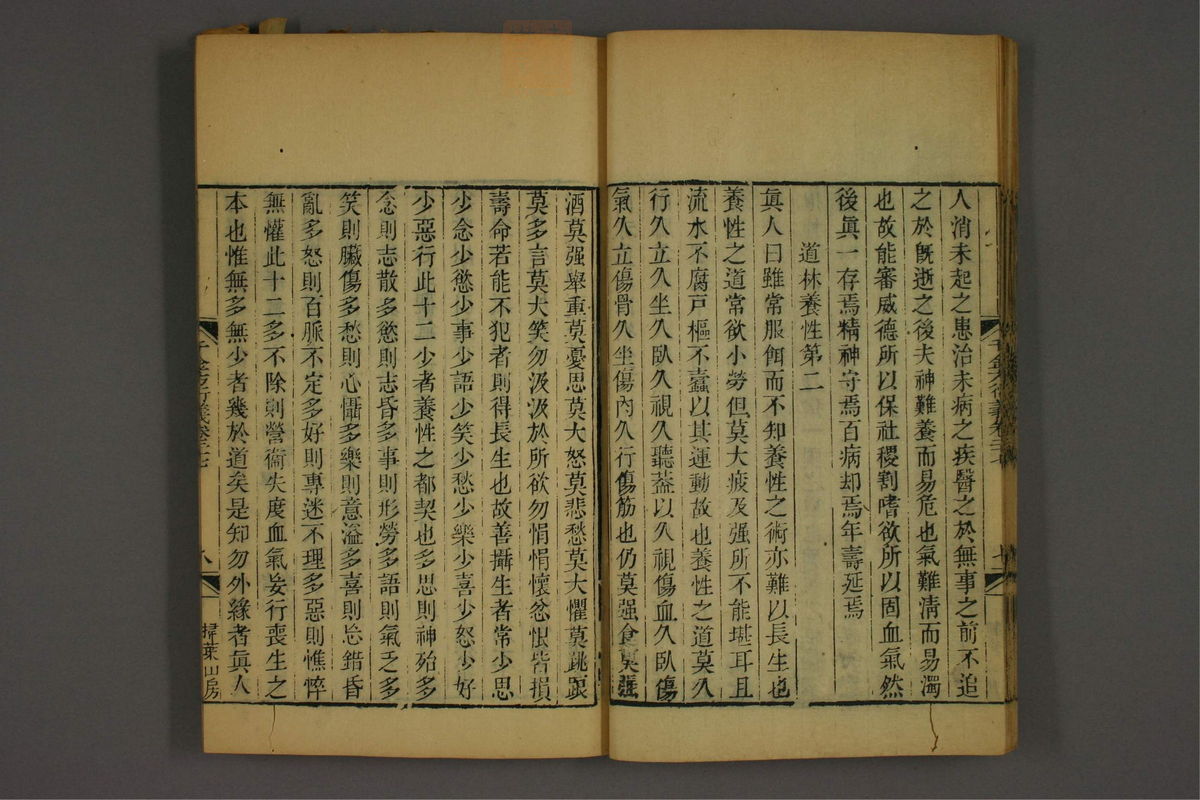 人消未起之患治未病之疾醫之於無事之前不追
之於旣逝之後夫神難養而易危也氣難淸而易濁
也故能審威德所以保社稷割嗜欲所以固血氣然
後眞一存焉精神守焉百病却焉年壽延焉
道林養性第二
眞人曰雖常服餌而不知養性之術亦難以長生也
養性之道常欲小勞但莫大疲及强所不能堪耳且
流水不腐戸樞不蠧以其運動故也養性之道莫久
行久立久坐久臥久視久聽葢以久視傷血久臥傷
氣久立傷骨久坐傷內久行傷筋也仍莫强食莫强
酒莫强舉重莫憂思莫大怒莫悲愁莫大懼莫跳踉
莫多言莫大笑勿汲汲於所欲勿悁悁懷忿恨皆損
壽命若能不犯者則得長生也故善攝生者常少思
少念少慾少事少語少笑少愁少樂少喜少怒少好
少惡行此十二少者養性之都契也多思則神殆多
念則志散多慾則志昏多事則形勞多語則氣乏多
笑則臟傷多愁則心懾多樂則意溢多喜則忘錯昏
亂多怒則百脈不定多好則專迷不理多惡則憔悴
無懽此十二多不除則營衞失度血氣妄行喪生之
本也惟無多無少者幾於道矣是知勿外緣者眞人
千金方衍義卷二十七
八
掃葉山房